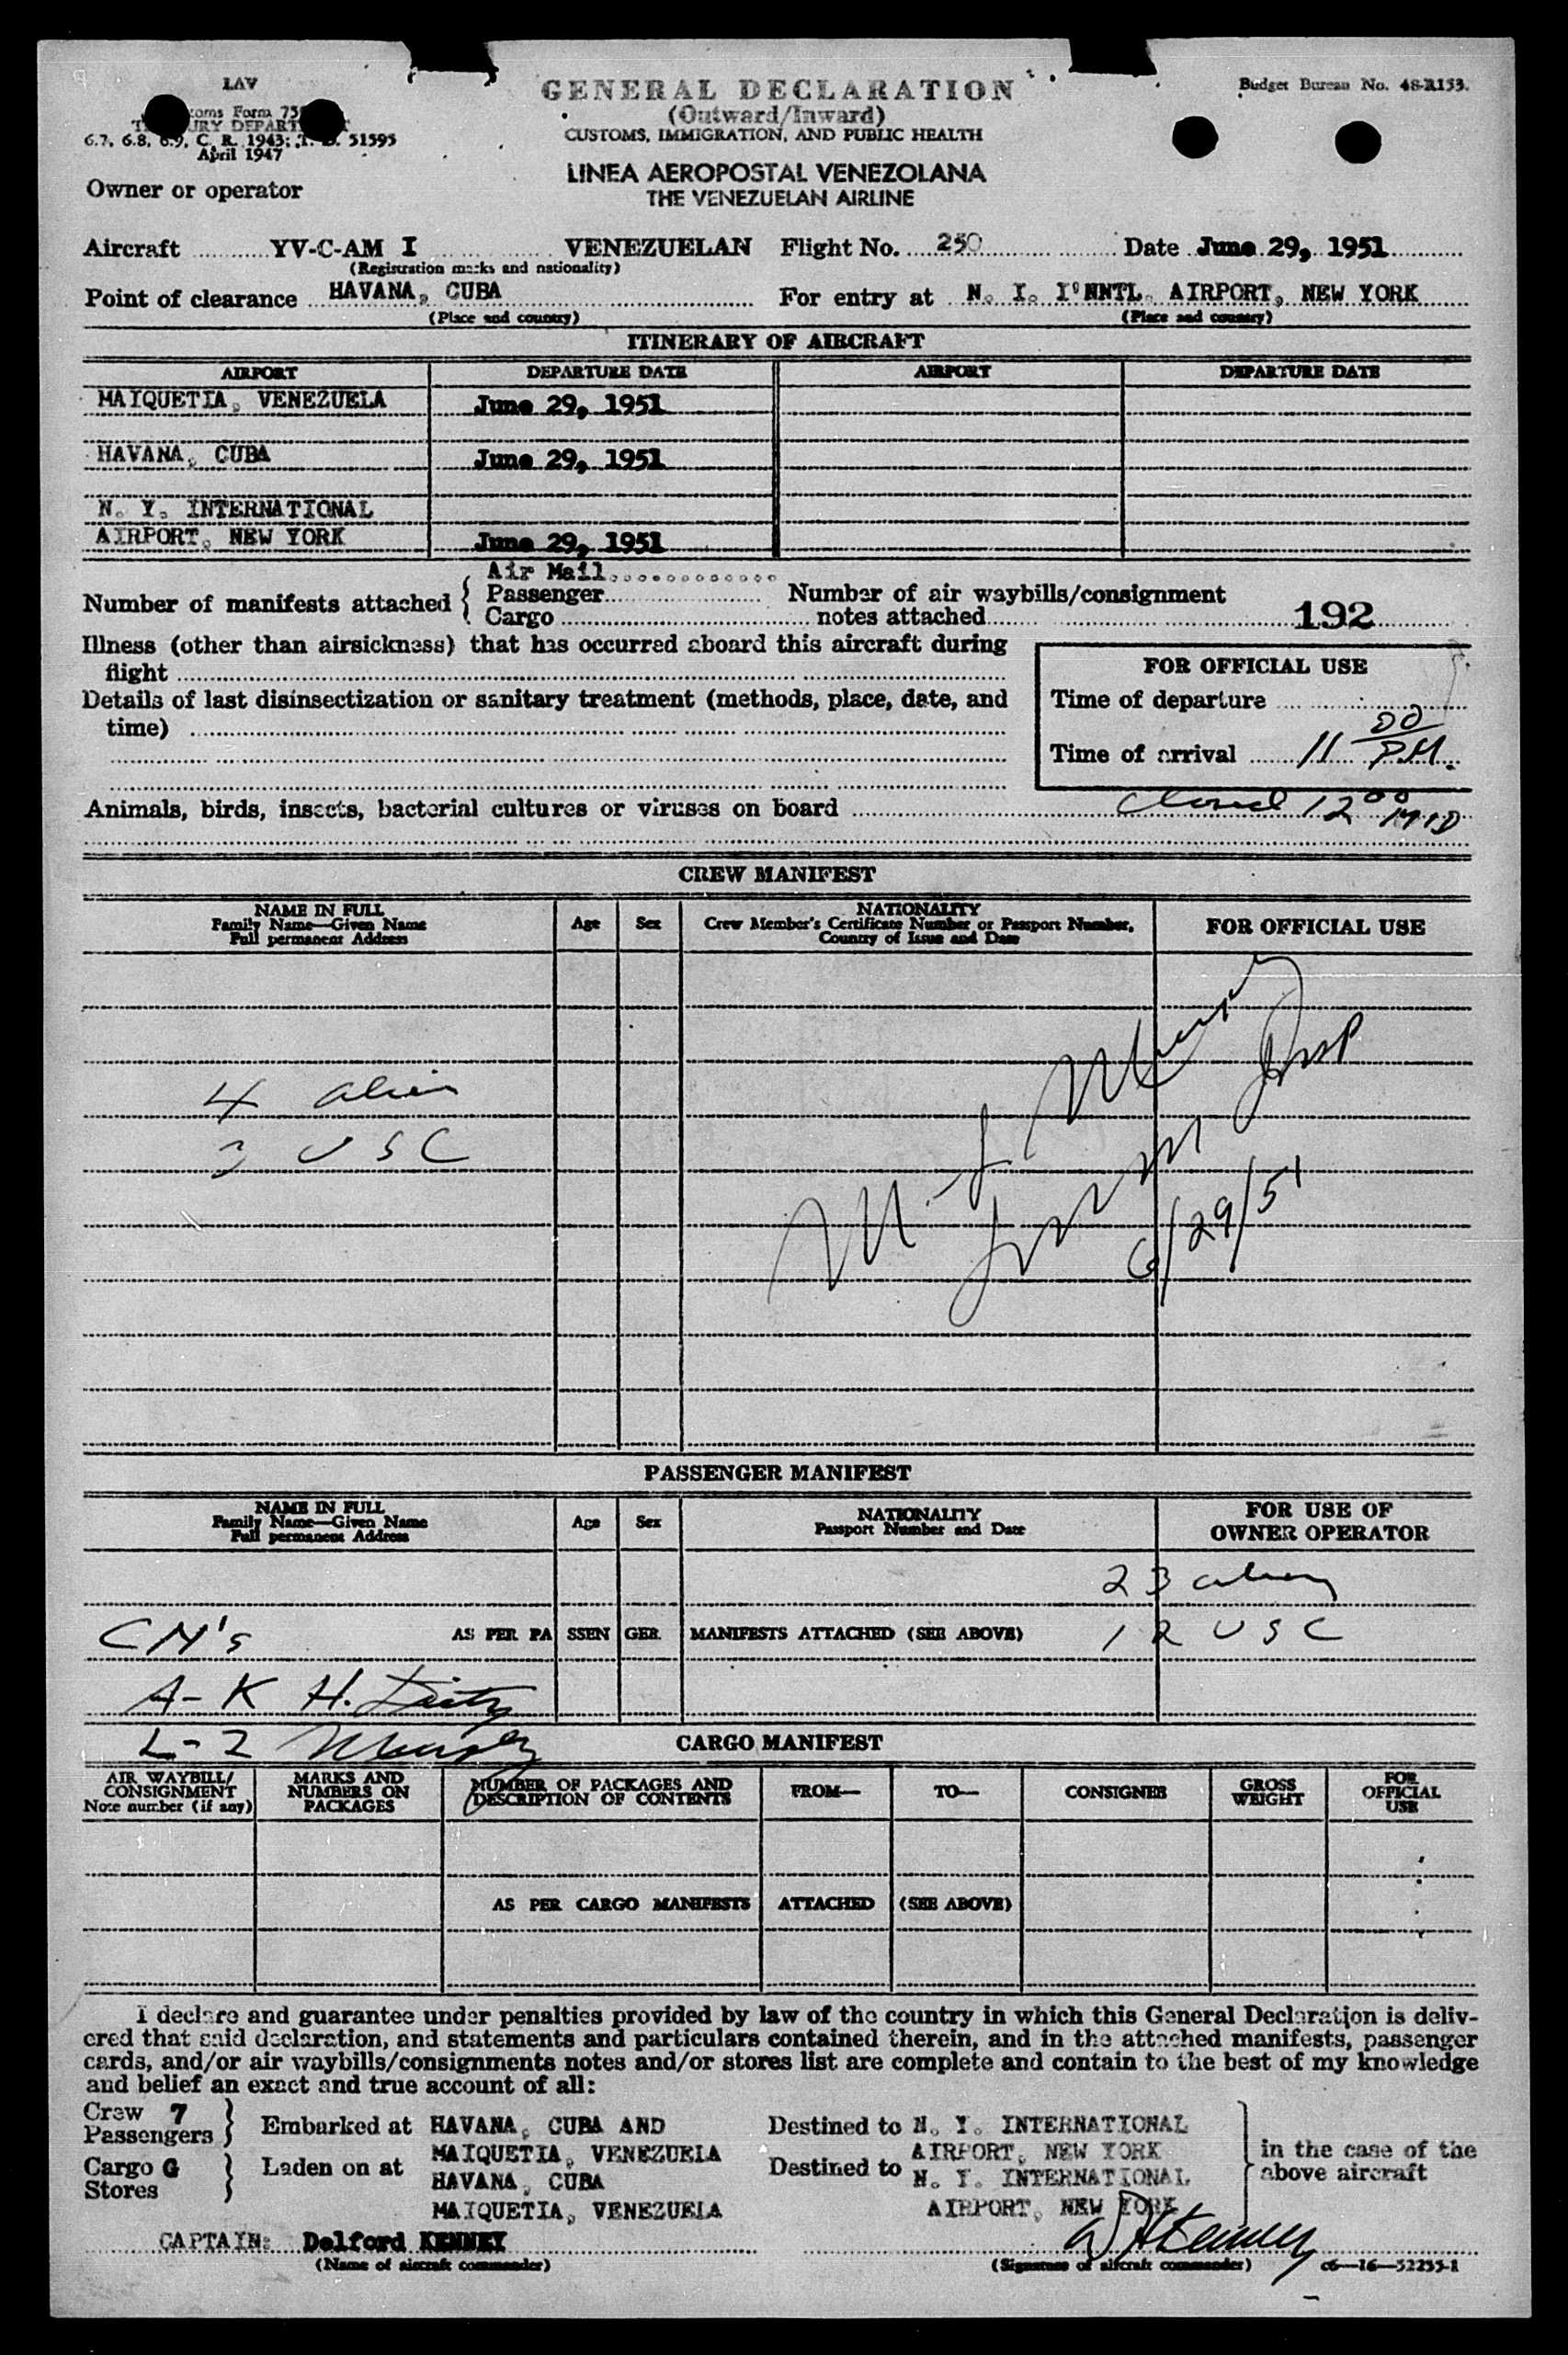 LAV
GENERAL DECLARATION
Budget Bureau No. 48-R153.
(Outward/Inward)
CUSTOMS, IMMIGRATION, AND PUBLIC HEALTH
6.7, 6.8, 6.9, C. R. 1943; T. D. 51595
April 1947
LINEA AEROPOSTAL VENEZOLANA
THE VENEZUELAN AIRLINE
Owner or operator
Aircraft YV-C-AM I VENEZUELAN Flight No. 250 Date June 29, 1951
(Registration marks and nationality)
Point of clearance HAVANA, CUBA For entry at N. I. I'NNTL. AIRPORT, NEW YORK
(Place and country) (Place and country)
ITINERARY OF AIRCRAFT
AIRPORT DEPARTURE DATE AIRPORT DEPARTURE DATE
MAIQUETIA, VENEZUELA June 29, 1951
HAVANA, CUBA June 29, 1951
N. Y. INTERNATIONAL
AIRPORT, NEW YORK June 29, 1951
Number of manifests attached { Air Mail
Passenger
Cargo
Number of air waybills/consignment
notes attached 192
Illness (other than airsickness) that has occurred aboard this aircraft during
flight
Details of last disinsectization or sanitary treatment (methods, place, date, and
time)
FOR OFFICIAL USE
Time of departure
Time of arrival 11 00 PM.
Animals, birds, insects, bacterial cultures or viruses on board
closed 12 00 MID
CREW MANIFEST
NAME IN FULL
Family Name—Given Name
Full permanent Address
Age Sex
NATIONALITY
Crew Member's Certificate Number or Passport Number,
Country of Issue and Date
FOR OFFICIAL USE
4 alien
3 USC
6/29/51
PASSENGER MANIFEST
NAME IN FULL
Family Name—Given Name
Full permanent Address
Age Sex
NATIONALITY
Passport Number and Date
FOR USE OF
OWNER OPERATOR
23 alien
CM's AS PER PASSENGER MANIFESTS ATTACHED (SEE ABOVE) 12 USC
A-K H.
L-Z Murphy
CARGO MANIFEST
AIR WAYBILL/
CONSIGNMENT
Note number (if any)
MARKS AND
NUMBERS ON
PACKAGES
NUMBER OF PACKAGES AND
DESCRIPTION OF CONTENTS
FROM— TO— CONSIGNEE
GROSS
WEIGHT
FOR
OFFICIAL
USE
AS PER CARGO MANIFESTS ATTACHED (SEE ABOVE)
I declare and guarantee under penalties provided by law of the country in which this General Declaration is deliv-
ered that said declaration, and statements and particulars contained therein, and in the attached manifests, passenger
cards, and/or air waybills/consignments notes and/or stores list are complete and contain to the best of my knowledge
and belief an exact and true account of all:
Crew 7
Passengers } Embarked at HAVANA, CUBA AND
MAIQUETIA, VENEZUELA
Destined to N. Y. INTERNATIONAL
AIRPORT, NEW YORK
Cargo G
Stores } Laden on at HAVANA, CUBA
MAIQUETIA, VENEZUELA
Destined to N. Y. INTERNATIONAL
AIRPORT, NEW YORK
in the case of the
above aircraft
CAPTAIN: Delford KENNEY
(Name of aircraft commander) (Signature of aircraft commander) c6—16—52255-1